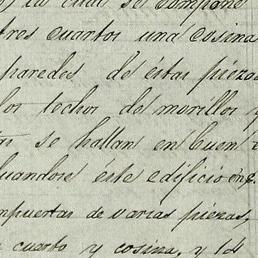 la cual se compone
tres cuartos una cosina
paredes de éstas piezas
los techos de morillos y
se hallan en buen
luandose éste edificio en
mpuertas de varias piezas,
cuarto y cosina, y 14